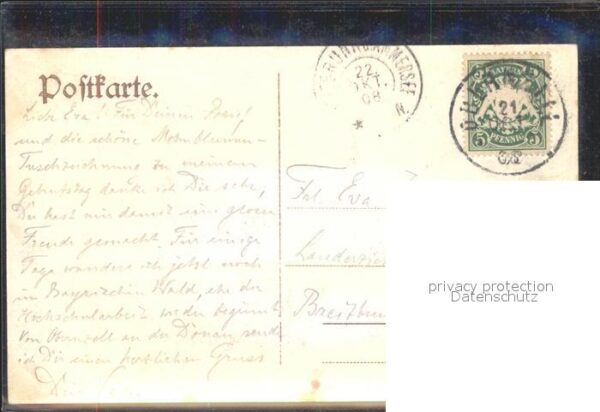 Postkarte.
Liebe Eva! Für Deinen Brief
und die schöne Mohnblumen-
Tuschzeichnung zu meinem
Geburtstag danke ich Dir sehr,
Du hast mir damit eine grosse
Freude gemacht. Für einige
Tage wandere ich jetzt noch
im Bayrischen Wald, ehe die
Hochschularbeit wieder beginnt.
Von Obernzell an der Donau sende
ich Dir einen herzlichen Gruss
Dein
AMMERSEE
22
OKT.
08
N.
BAYERN
21
OKT
08
5 PFENNIG 5
Frl. Eva
Breitbrunn
privacy protection
Datenschutz